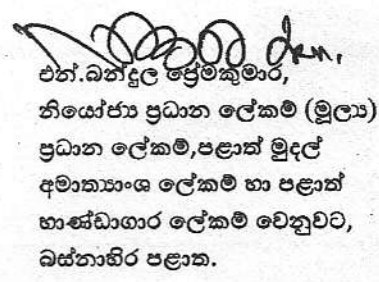 එන්.බන්දුල ප්‍රේමකුමාර,
නියෝජ්‍ය ප්‍රධාන ලේකම් (මූල්‍ය)
ප්‍රධාන ලේකම්,පළාත් මුදල්
අමාත්‍යාංශ ලේකම් හා පළාත්
භාණ්ඩාගාර ලේකම් වෙනුවට,
බස්නාහිර පළාත.